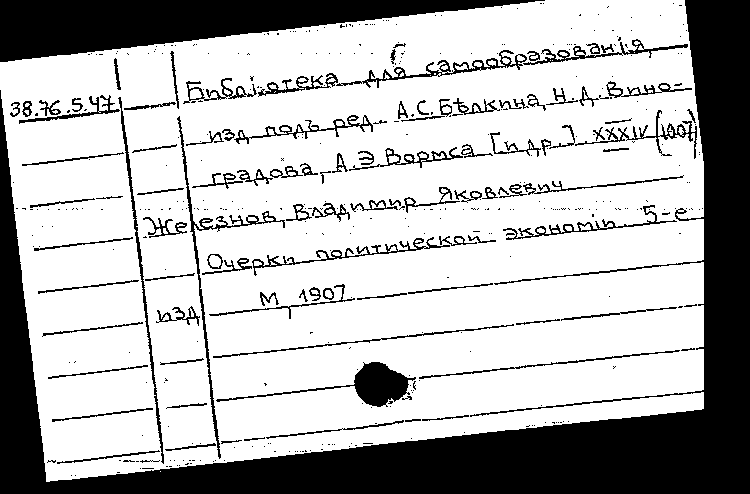 Библіотека для самообразованія,
38.76.5.47
изд подъ ред. А.С.Бѣлкина, Н.Д.Вино-
градова, А.Э.Вормса [и др.] XXXIV (1907)
Железнов, Владимир Яковлевич
Очерки политической экономіи. 5-е
изд М, 1907